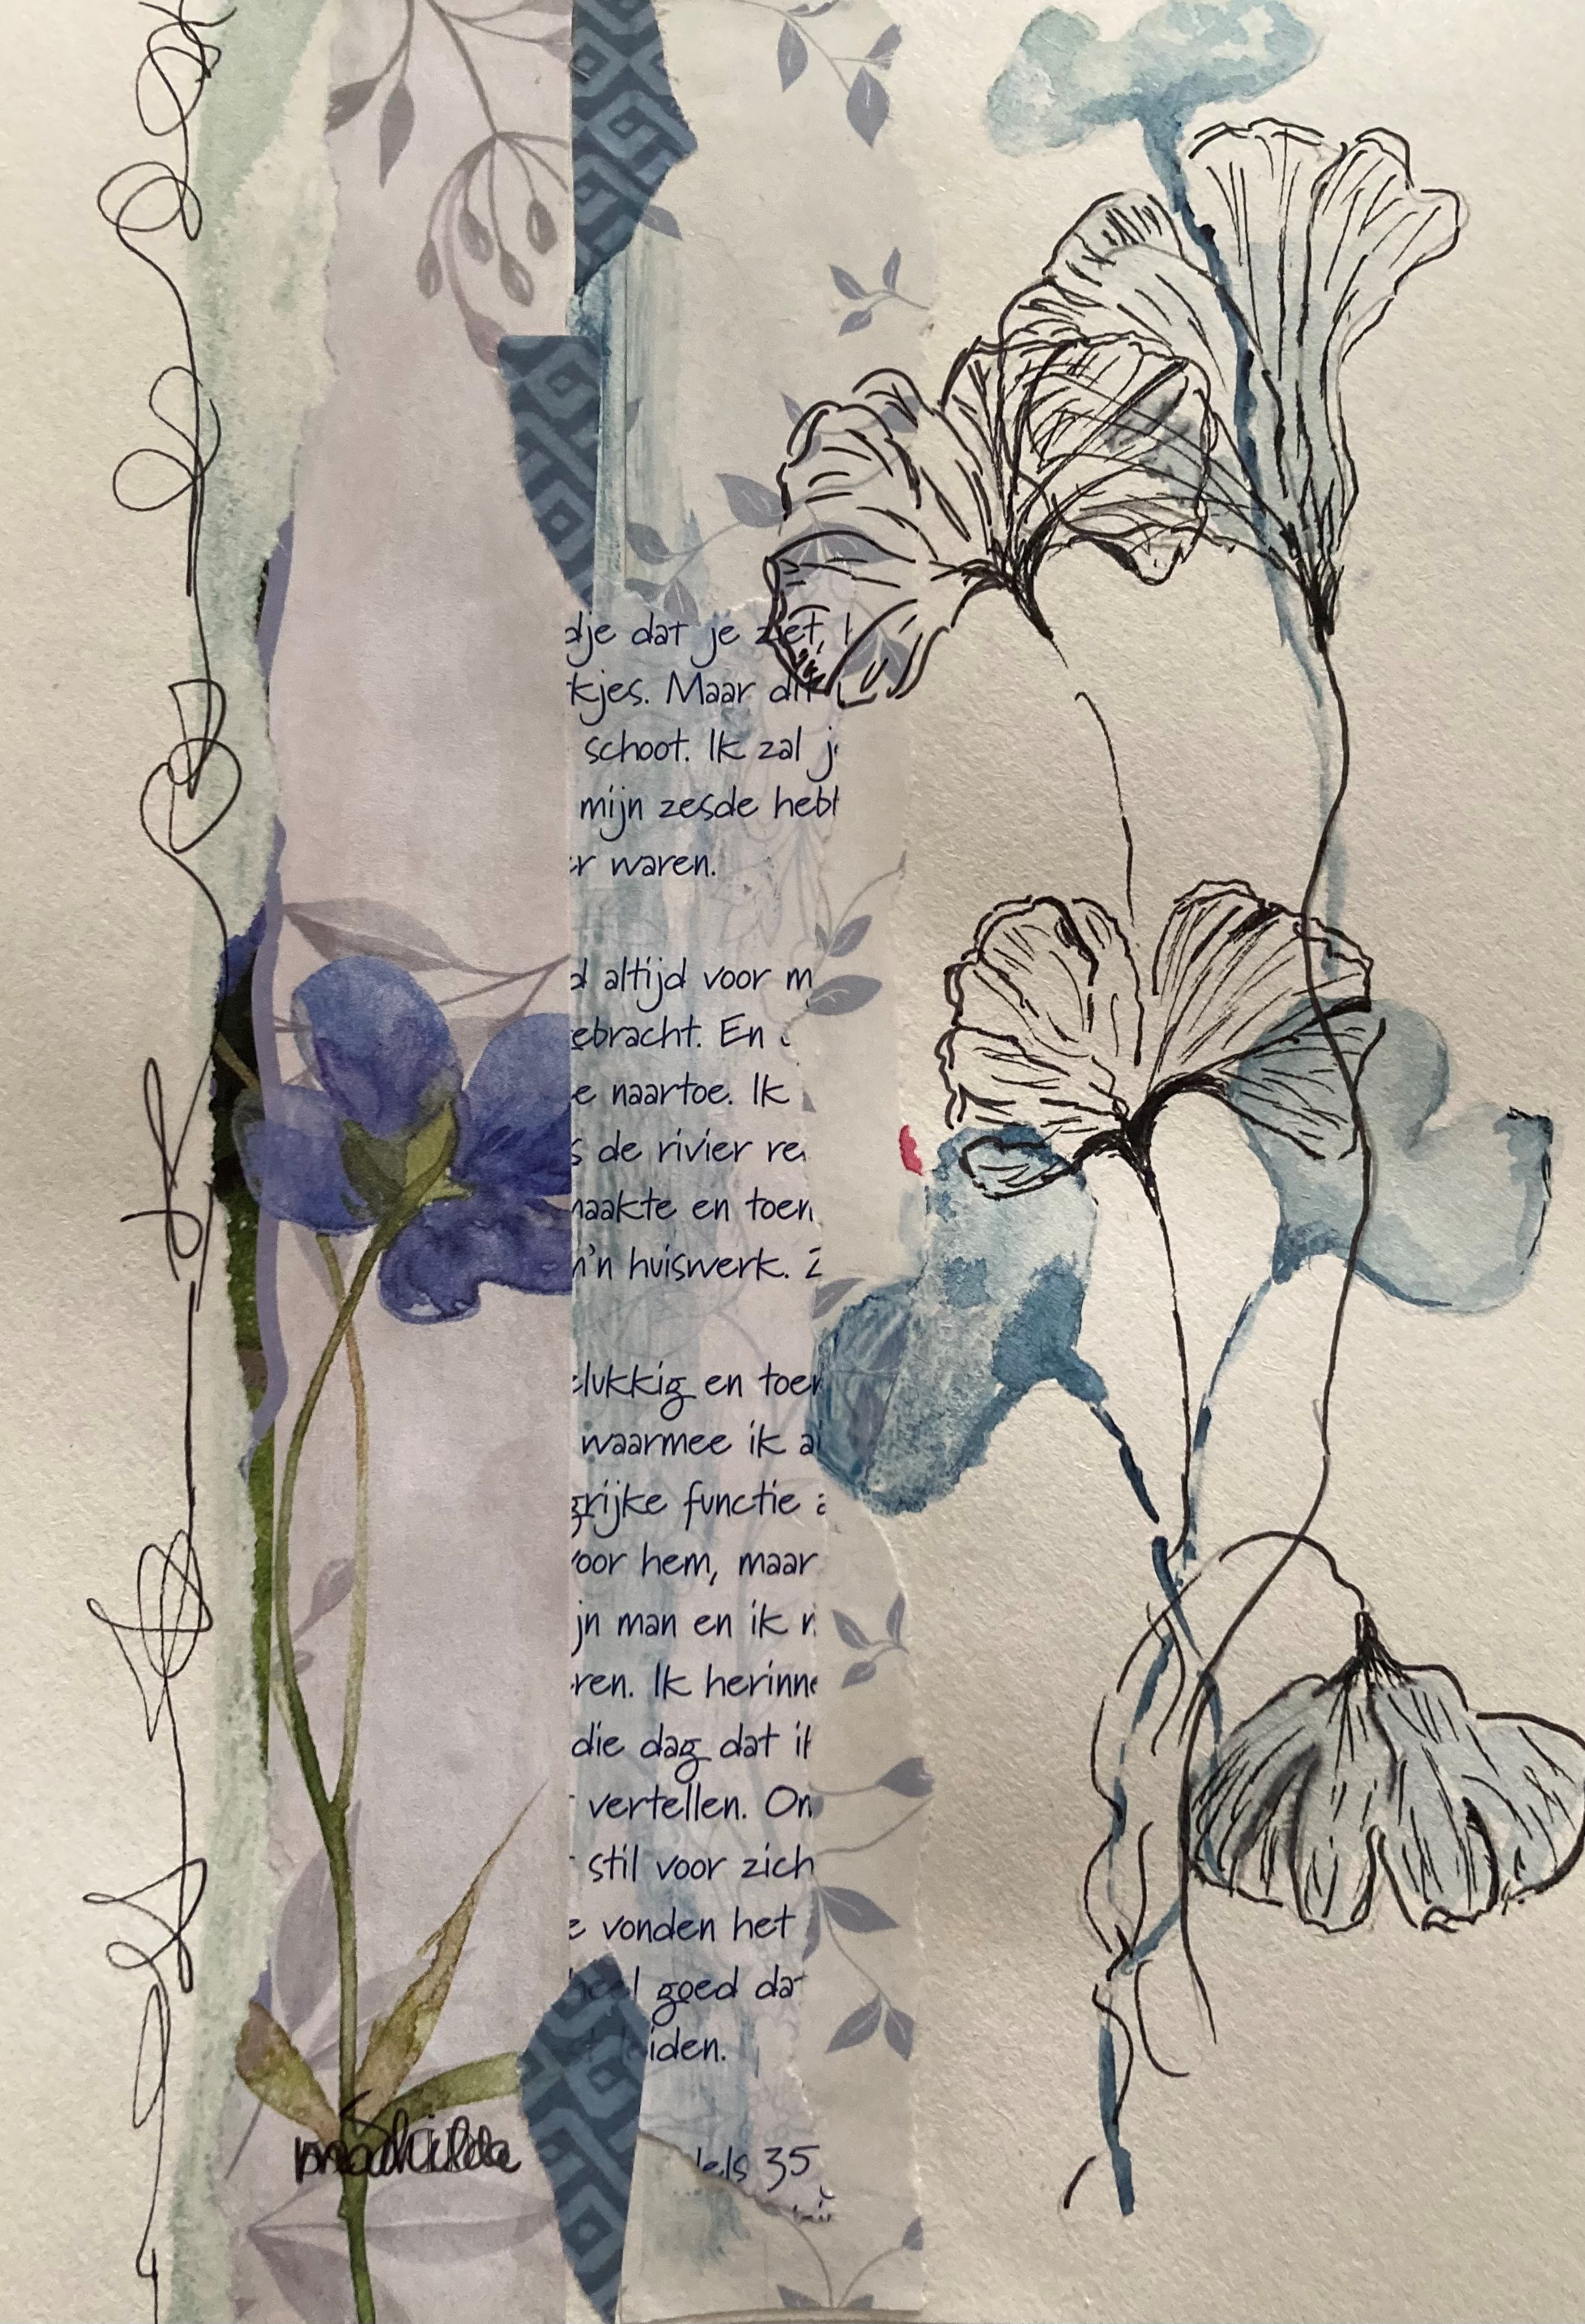 dje dat je ziet,
kjes. Maar dit
schoot. Ik zal je
mijn zesde hebt
er waren.
altijd voor m
ebracht. En
e naartoe. Ik
s de rivier re
maakte en toen
m'n huiswerk. Z
elukkig en toen
waarmee ik al
grijke functie a
voor hem, maar
ijn man en ik n
ren. Ik herinne
die dag dat ik
vertellen. Om
stil voor zich
e vonden het
heel goed dat
iden.
dels 35